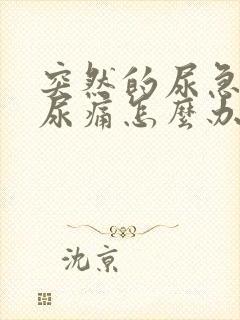 突然的尿急
尿痛怎麼办
沈京